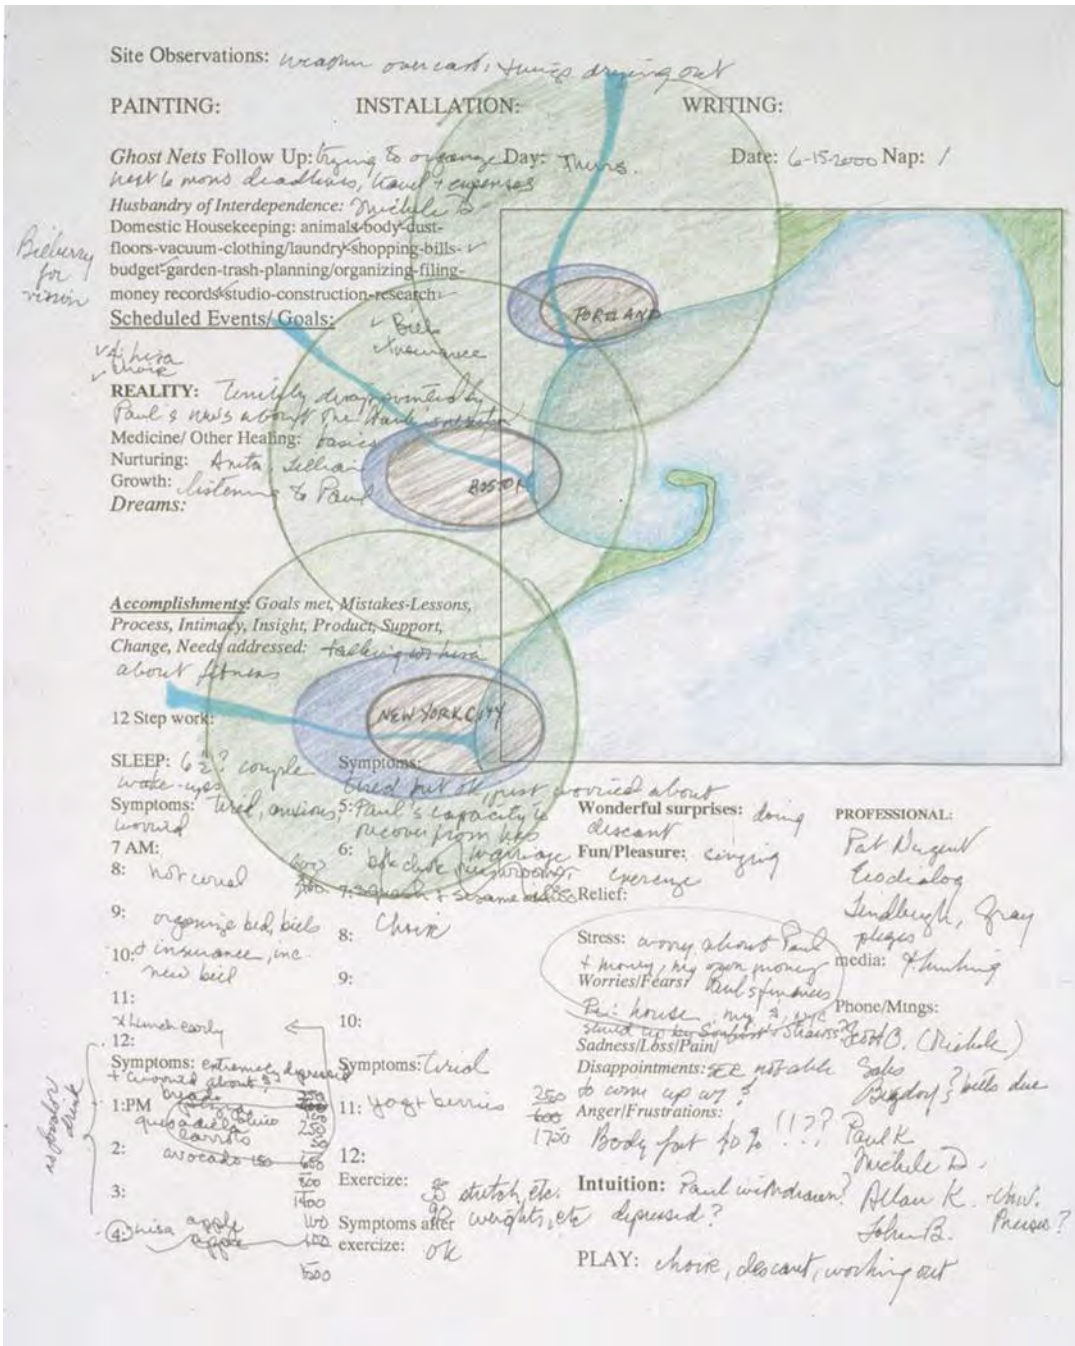 Site Observations: weather overcast, things drying out
PAINTING: INSTALLATION: WRITING:
Ghost Nets Follow Up: trying to organize Day: Thurs. Date: 6-15-2000 Nap: /
next 6 mons deadlines, travel + expenses
Husbandry of Interdependence: Michele D
Domestic Housekeeping: animals-body-dust-
floors-vacuum-clothing/laundry-shopping-bills-
budget-garden-trash-planning/organizing-filing-
money records-studio-construction-research
Bilberry
for
vision
Scheduled Events/Goals:
Bills
insurance
4: Lisa
choir
PORTLAND
REALITY: Terribly disappointed by
Paul's news about the
Medicine/ Other Healing: basics
Nurturing: Anita, Lillian
Growth: listening to Paul
Dreams:
BOSTON
Accomplishments: Goals met, Mistakes-Lessons,
Process, Intimacy, Insight, Product, Support,
Change, Needs addressed: talking w Lisa
about fitness
12 Step work:
NEW YORK CITY
SLEEP: 6 ½? couple
wake-ups
Symptoms: tired, anxious,
worried
7 AM:
8: not cereal
9: organize bed, bills
10: + insurance, inc.
new bill
11:
lunch early
12:
Symptoms: extremely depressed
+ worried about $?
1:PM
quesadilla
carrots
2: avocado 150
3:
4: Lisa apple 100
apple 100
1500
Symptoms:
tired but ok, just worried about
5: Paul's capacity to
recover from his
marriage
6: bok choi mushrooms
7: squash + sesame
8: Choir
9:
10:
Symptoms: tired
11: yogt berries 250
600
1750
12:
Exercize: 35 stretch, etc.
90 weights, etc
Symptoms after
exercize: ok
Wonderful surprises: doing
descant
Fun/Pleasure: singing
exercize
Relief:
Stress: worry about Paul
+ money, my own money
Worries/Fears: Paul's finances
Re: house, my $, nyc
Sadness/Loss/Pain/
Disappointments: not able
to come up w $
Anger/Frustrations:
Body fat 40% !!??
Intuition: Paul withdrawn?
depressed?
PLAY: choir, descant, working out
PROFESSIONAL:
Pat Nugent
Ecodialog
Lindbergh, Gray
pliges
media: thinking
Phone/Mtngs:
B. (Michele)
Sales
? bills due
Paul K
Michele D.
Allan K. - Univ.
Presses?
John B.